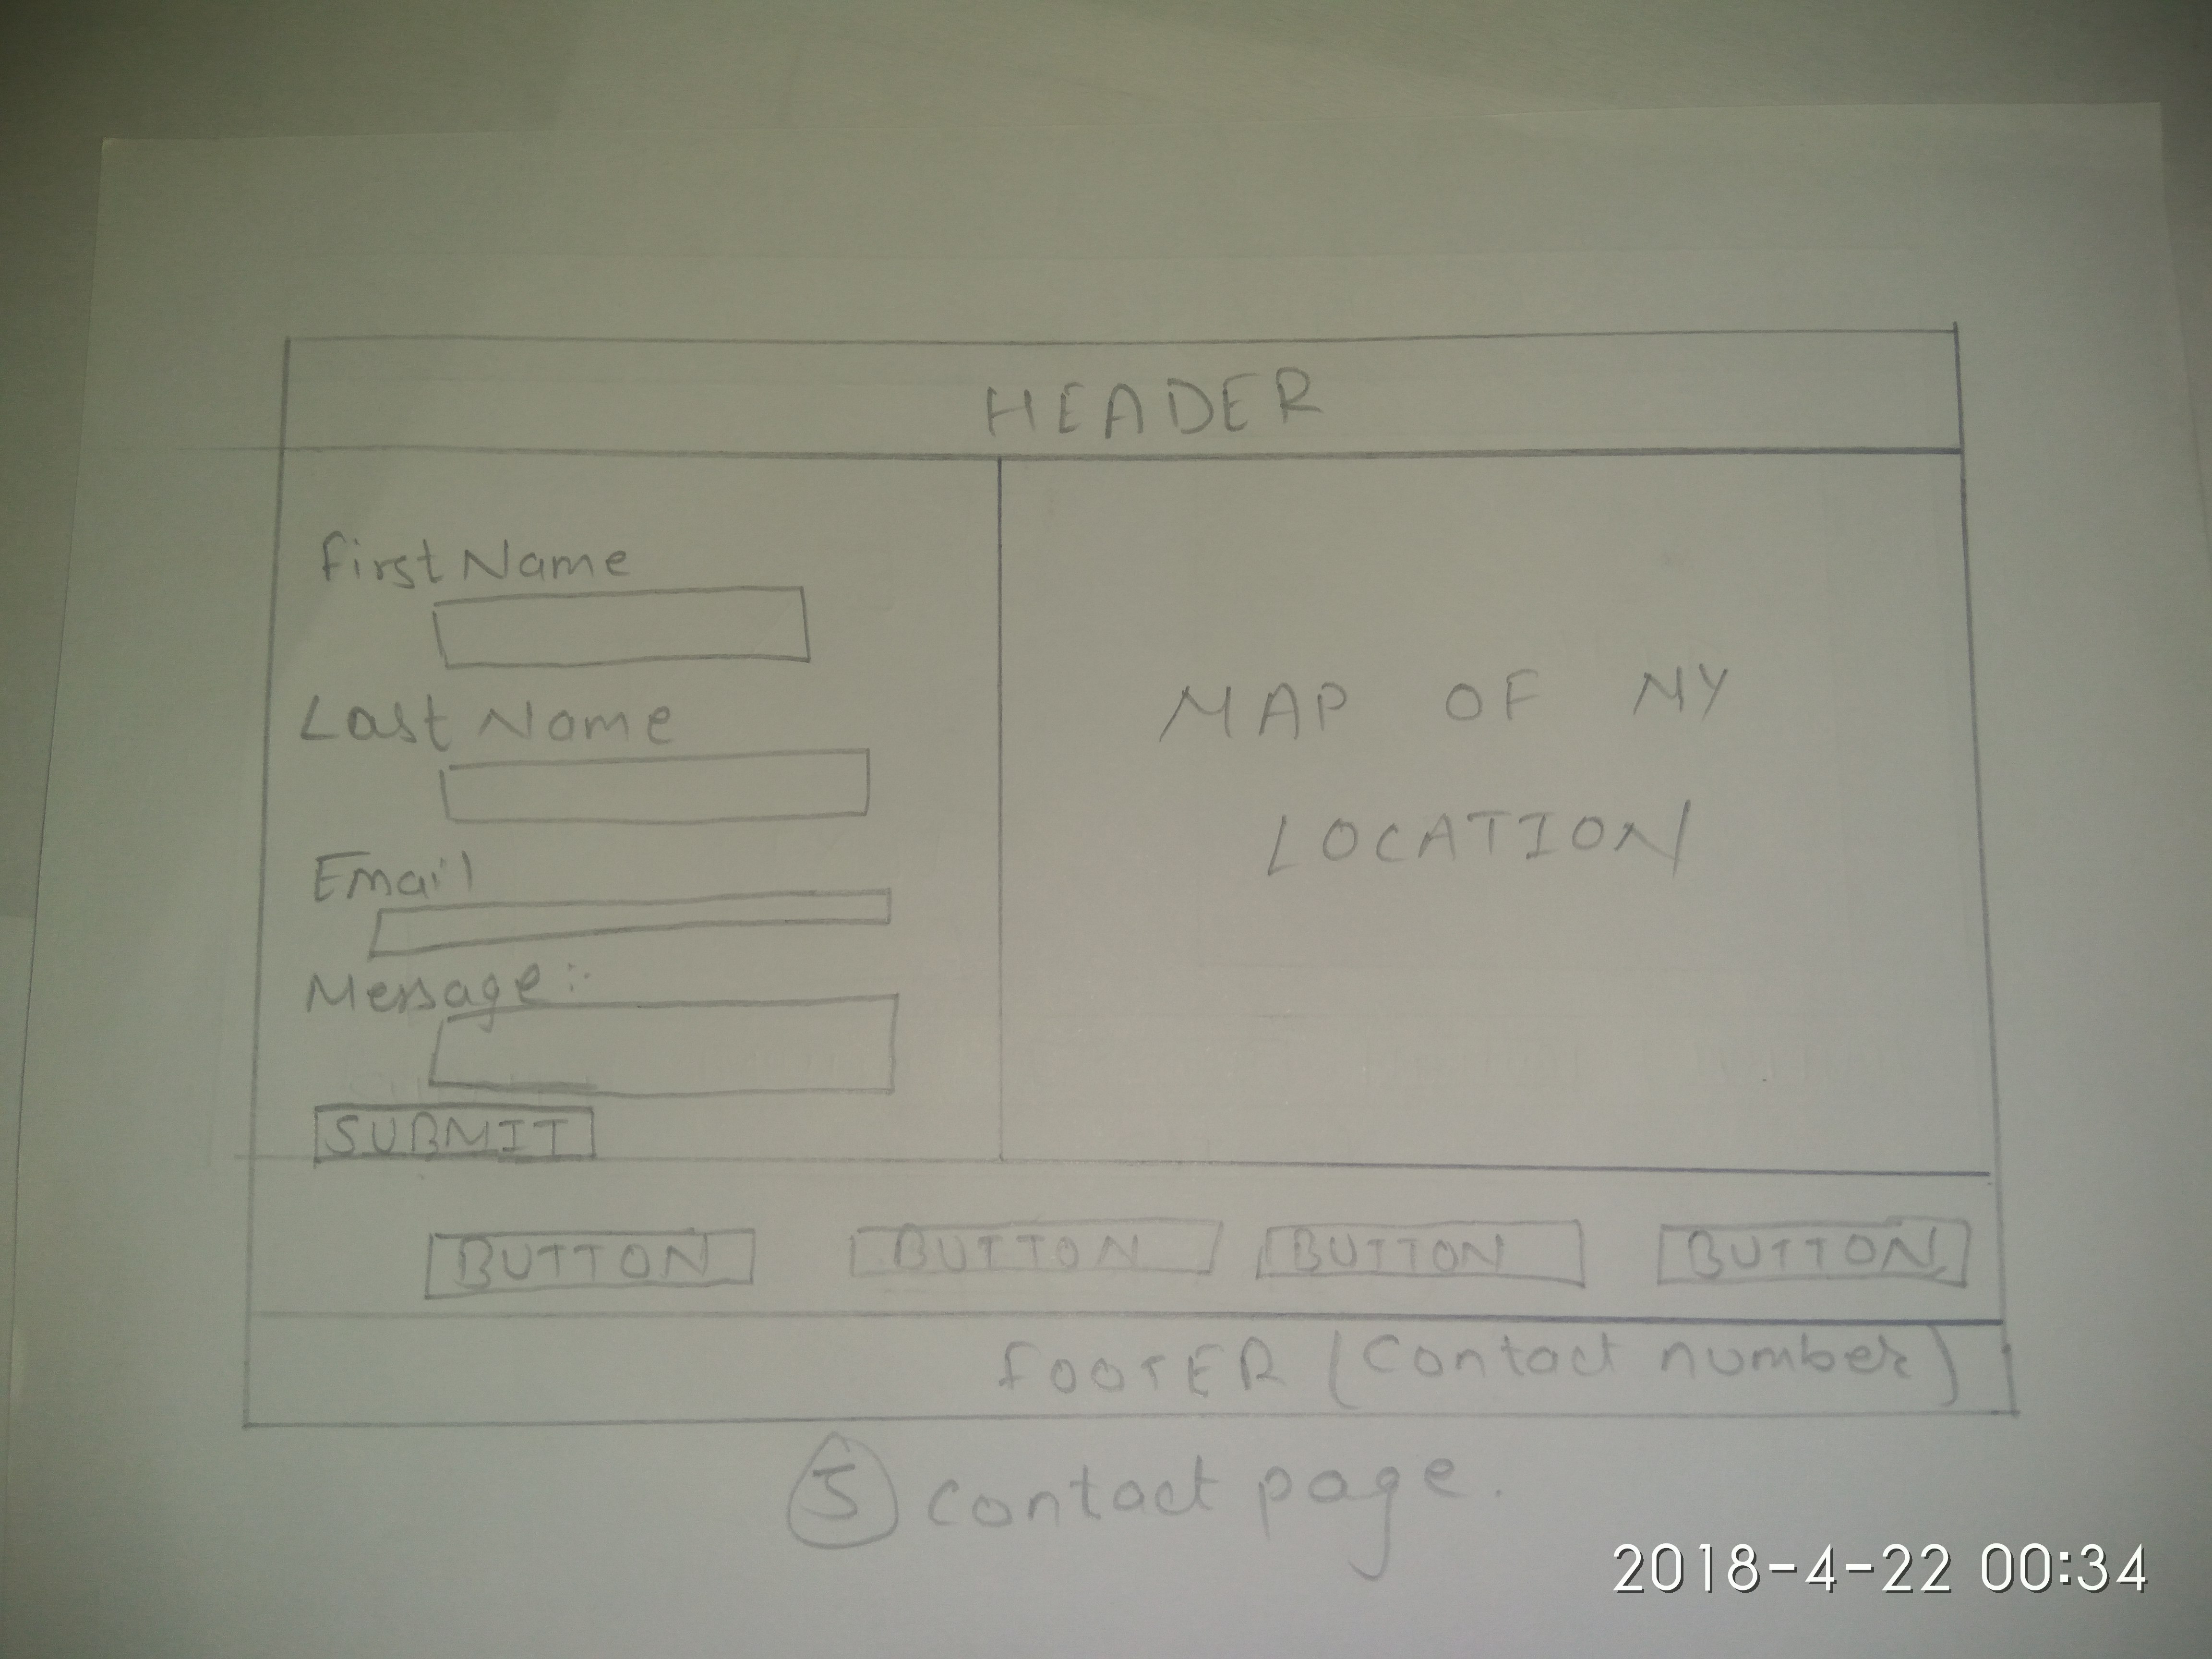 HEADER
First Name
Last Name
Email
Message :-
SUBMIT
MAP OF MY
LOCATION
BUTTON BUTTON BUTTON BUTTON
FOOTER (Contact number)
5 contact page.
2018-4-22 00:34